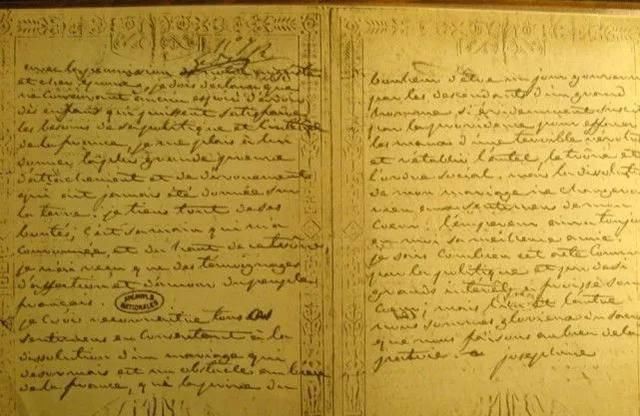 N° 2
avec la permission de notre auguste
et cher epoux, je dois declarer que
ne conservant aucun espoir d'avoir
des enfants qui puissent satisfaire
les besoins de sa politique et l'interet
de la france, je me plais à lui
donner la plus grande preuve
d'attachement et de devouement
qui ait jamais été donnée sur
la terre. je tiens tout de ses
bontés; c'est sa main qui m'a
couronnée, et du haut de ce trône,
je n'ai reçu que des témoignages
d'affection et d'amour du peuple
français.
ARCHIVES NATIONALES
je crois reconnaitre tous ces
sentimens en consentant à la
dissolution d'un mariage qui
desormais est un obstacle au bien
de la france, qui la prive du
bonheur d'être un jour gouvernée
par les descendants d'un grand
homme si évidemment
par la providence pour effacer
les maux d'une terrible
et rétablir l'autel, le trône et
l'ordre social. mais la dissolution
de mon mariage ne changera
rien aux sentimens de mon
coeur: l'empereur aura toujours
en moi sa meilleure amie.
je sais combien cet acte
par la politique et par de si
grands interêts, a froissé son
coeur; mais l'un et l'autre
nous sommes glorieux du
que nous faisons au bien de la
patrie. josephine